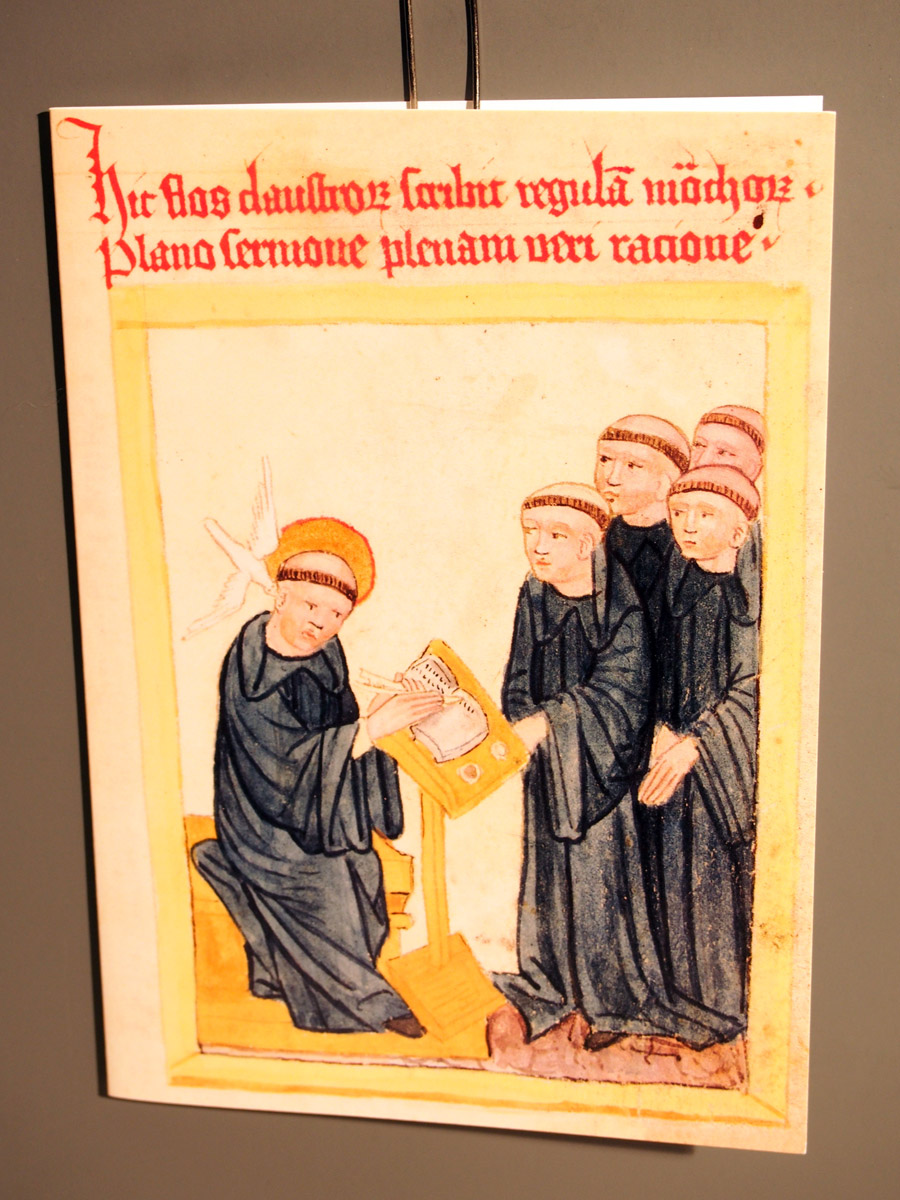 Hic flos claustroꝝ scribit regulā mōchoꝝ
Plano sermone plenam veri racione